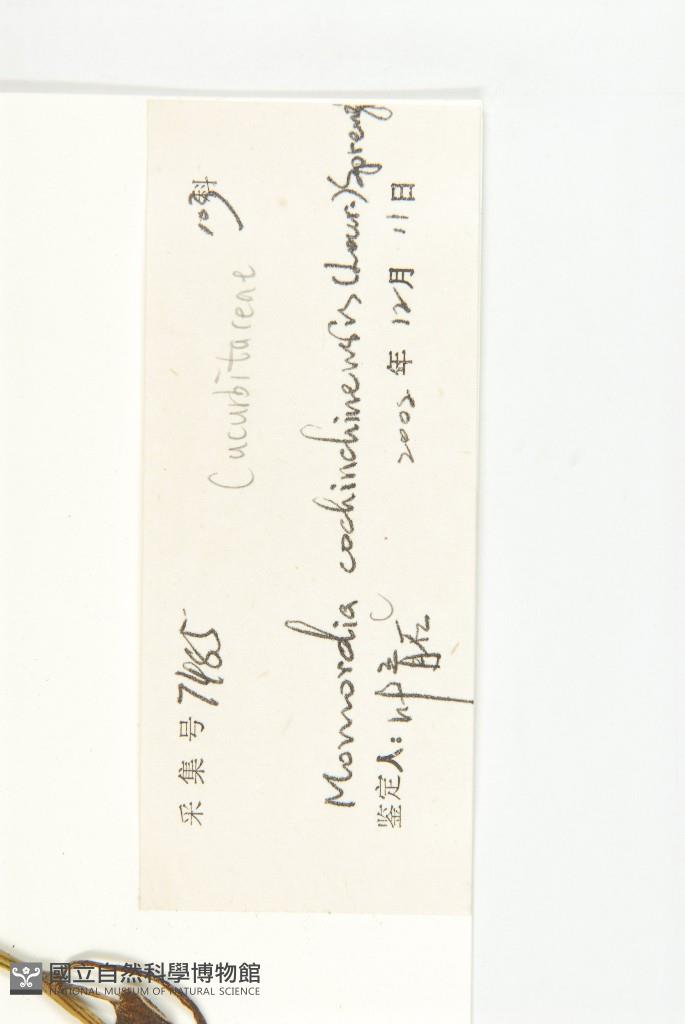 采集号 7485
Cucurbitaceae 科
Momordia cochinchinensis (Lour.) Spreng
C
鉴定人: 叶
2002 年 12 月 11 日
國立自然科學博物館
NATIONAL MUSEUM OF NATURAL SCIENCE